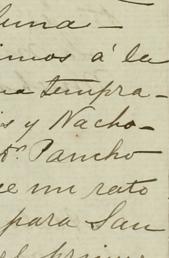 luna—
imos á la
na tempra-
is y Nacho-
Dr. Pancho
ue un rato
para San
el prime